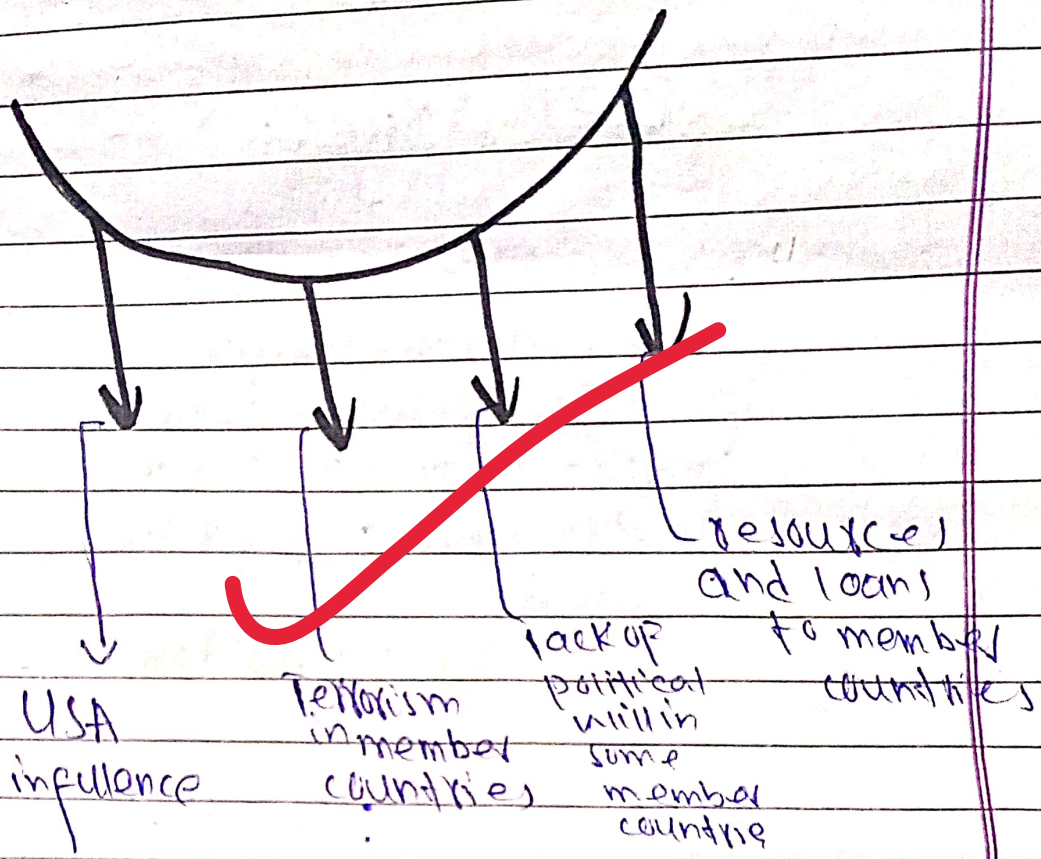 USA
infulence
Terrorism
in member
countries
lack of
political
will in
some
member
countrie
resources
and loans
to member
countries